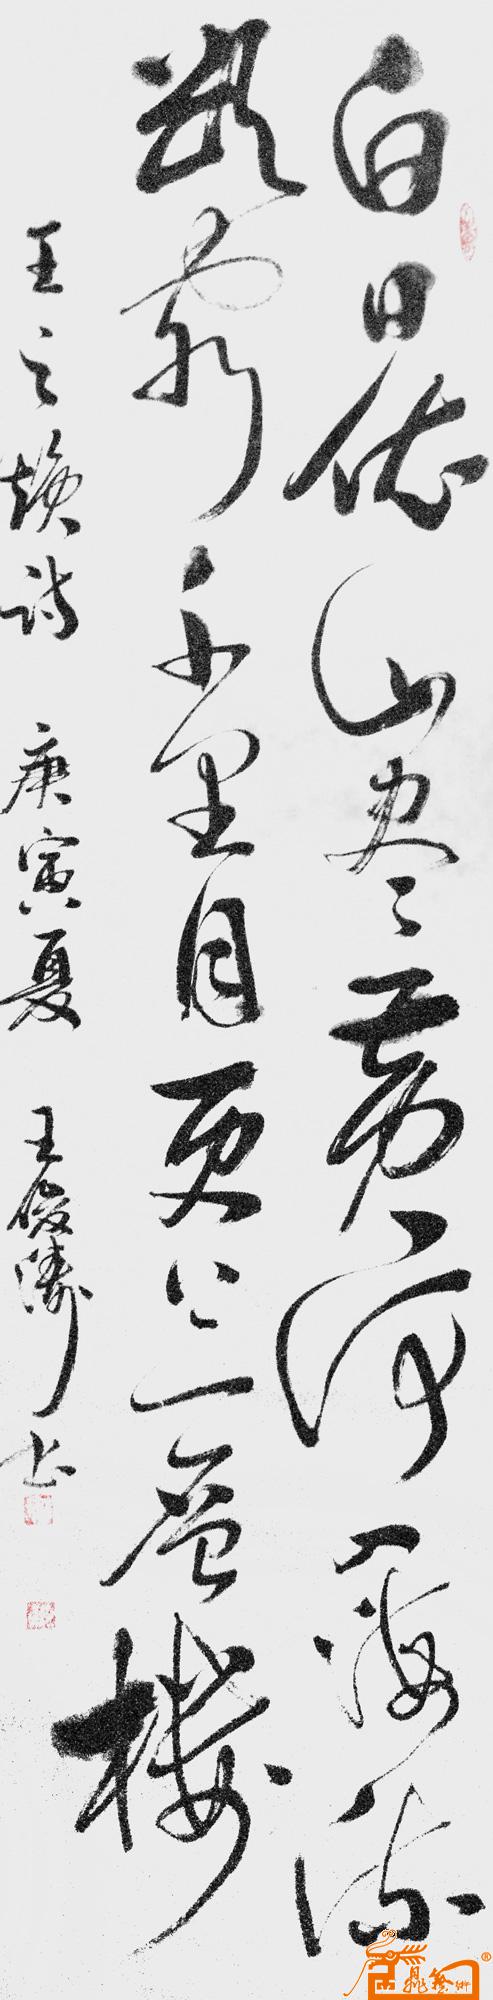 白日依山尽黄河入海流
欲穷千里目更上一层楼
王之焕诗 庚寅夏 王俊涛书